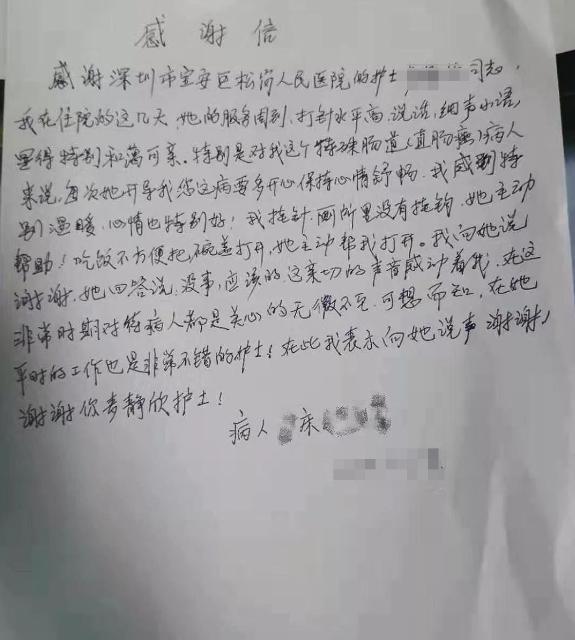 感谢信
感谢深圳市宝安区松岗人民医院的护士 同志,
我在住院的这几天,她的服务周到,打针水平高,说话,细声小语,
显得特别和蔼可亲,特别是对我这个特殊肠道(直肠癌)病人
来说,每次她开导我您这病要多开心保持心情舒畅,我感到特
别温暖,心情也特别好!我挂针,厕所里没有挂钩,她主动
帮助!吃饭不方便把碗盖打开,她主动帮我打开。我向她说
谢谢,她回答说,没事,应该的,这亲切的声音感动着我,在这
非常时期对待病人都是关心的无微不至,可想而知,在她
平时的工作也是非常不错的护士!在此我表示向她说声谢谢!
谢谢你李静欣护士!
病人 床